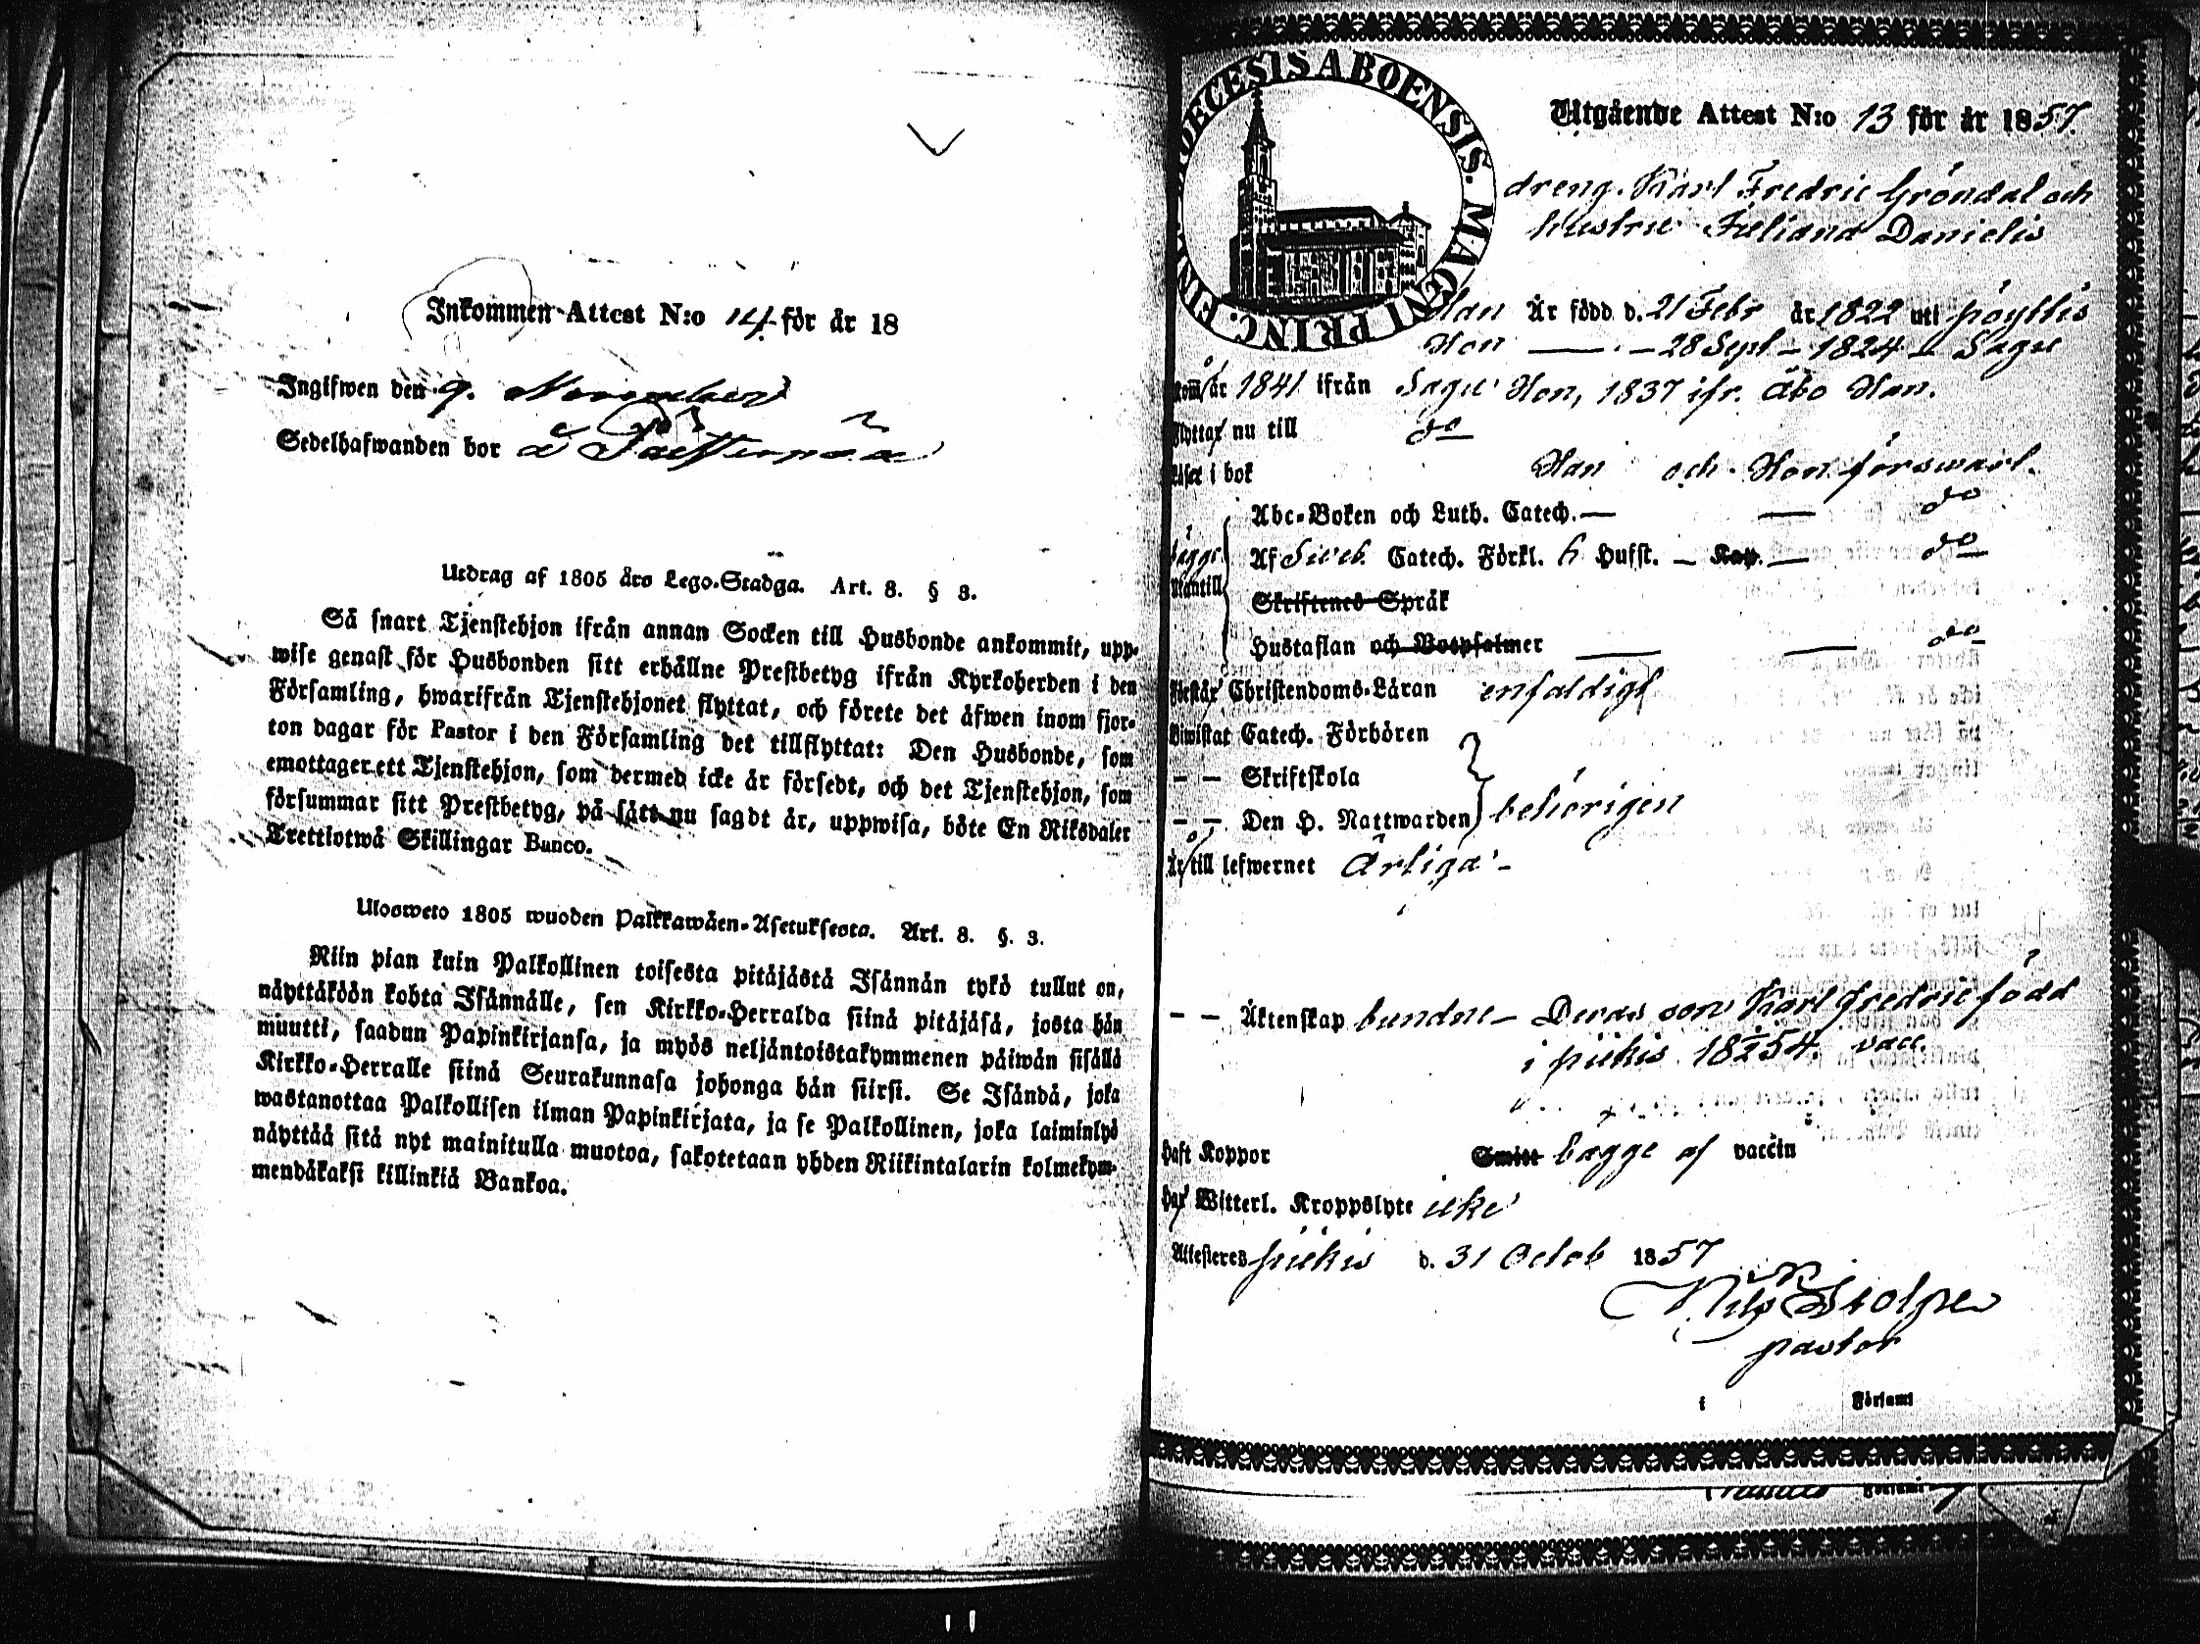 Inkommen Attest N:o 14 för år 18
Ingifwen den 9. November
Sedelhafwanden bor å
Utdrag af 1805 års Lego-Stadga. Art. 8. § 3.
Så snart Tjenstehjon ifrån annan Socken till Husbonde ankommit, upp-
wise genast för Husbonden sitt erhållne Prestbetyg ifrån Kyrkoherden i den
Församling, hwarifrån Tjenstehjonet flyttat, och förete det äfwen inom fjor-
ton dagar för Pastor i den Församling det tillflyttat: Den Husbonde, som
emottager ett Tjenstehjon, som dermed icke är försedt, och det Tjenstehjon, som
försummar sitt Prestbetyg, på sätt nu sagdt är, uppwisa, böte En Riksdaler
Trettiotwå Skillingar Banco.
Ulosweto 1805 wuoden Palkkawäen-Asetuksesta. Art. 8. §. 3.
Niin pian kuin Palkollinen toisesta pitäjästä Isännän tykö tullut on,
näyttäköön kohta Isännälle, sen Kirkko-Herralda siinä pitäjäsä, josta hän
muutti, saadun Papinkirjansa, ja myös neljäntoistakymmenen päiwän sisällä
Kirkko-Herralle siinä Seurakunnasa johonga hän siirsi. Se Isändä, joka
wastanottaa Palkollisen ilman Papinkirjata, ja se Palkollinen, joka laiminlyö
näyttää sitä nyt mainitulla muotoa, sakotetaan yhden Riikintalarin kolmekym-
mendäkaksi killinkiä Bankoa.
DIOECESIS ABOENSIS. MAGNI PRINC. FINL.
Utgående Attest N:o 13 för år 1857.
dreng. Karl Fredric Gröndal och
hustru Juliana Danielis
Han Är född d. 21 Febr år 1822 uti pöyttis
Hon — — 28 Sept — 1824 — Sagu
kom år 1841 ifrån Sagu Hon, 1837 ifr. Åbo Han.
Flyttar nu till do
Läser i bok Han och Hon förswarl.
Abc-Boken och Luth. Catech. — — do
Af Sveb. Catech. Förkl. 6 Hufst. — Kap. — do
begge
Utantill
Skriftenes Språk
Hustaflan och Botpsalmer — — do
Förstår Christendoms-Läran enfaldigt
Biwistat Catech. Förhören
— — Skriftskola
— — Den H. Nattwarden behörigen
Är till lefwernet Ärliga —
— — Äktenskap bundne — Deras son Karl Fredric född
i piikis 1854. vacc.
Haft Koppor Smitt begge af vaccin
Har Witterl. Kroppslyte icke
Attesteres piikis d. 31 Octob 1857
Nils Stolpe
pastor
i Församl
Församl